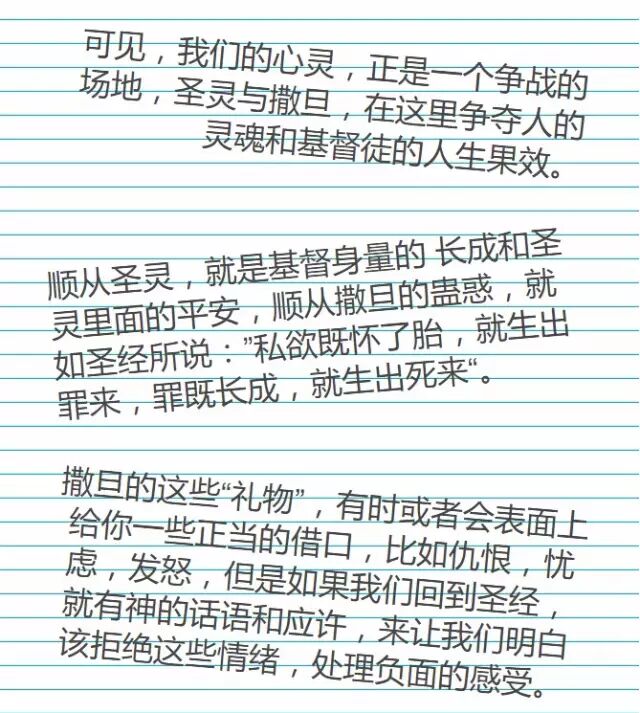 可见，我们的心灵，正是一个争战的
场地，圣灵与撒旦，在这里争夺人的
灵魂和基督徒的人生果效。
顺从圣灵，就是基督身量的 长成和圣
灵里面的平安，顺从撒旦的蛊惑，就
如圣经所说：”私欲既怀了胎，就生出
罪来，罪既长成，就生出死来“。
撒旦的这些“礼物”，有时或者会表面上
给你一些正当的借口，比如仇恨，忧
虑，发怒，但是如果我们回到圣经，
就有神的话语和应许，来让我们明白
该拒绝这些情绪，处理负面的感受。